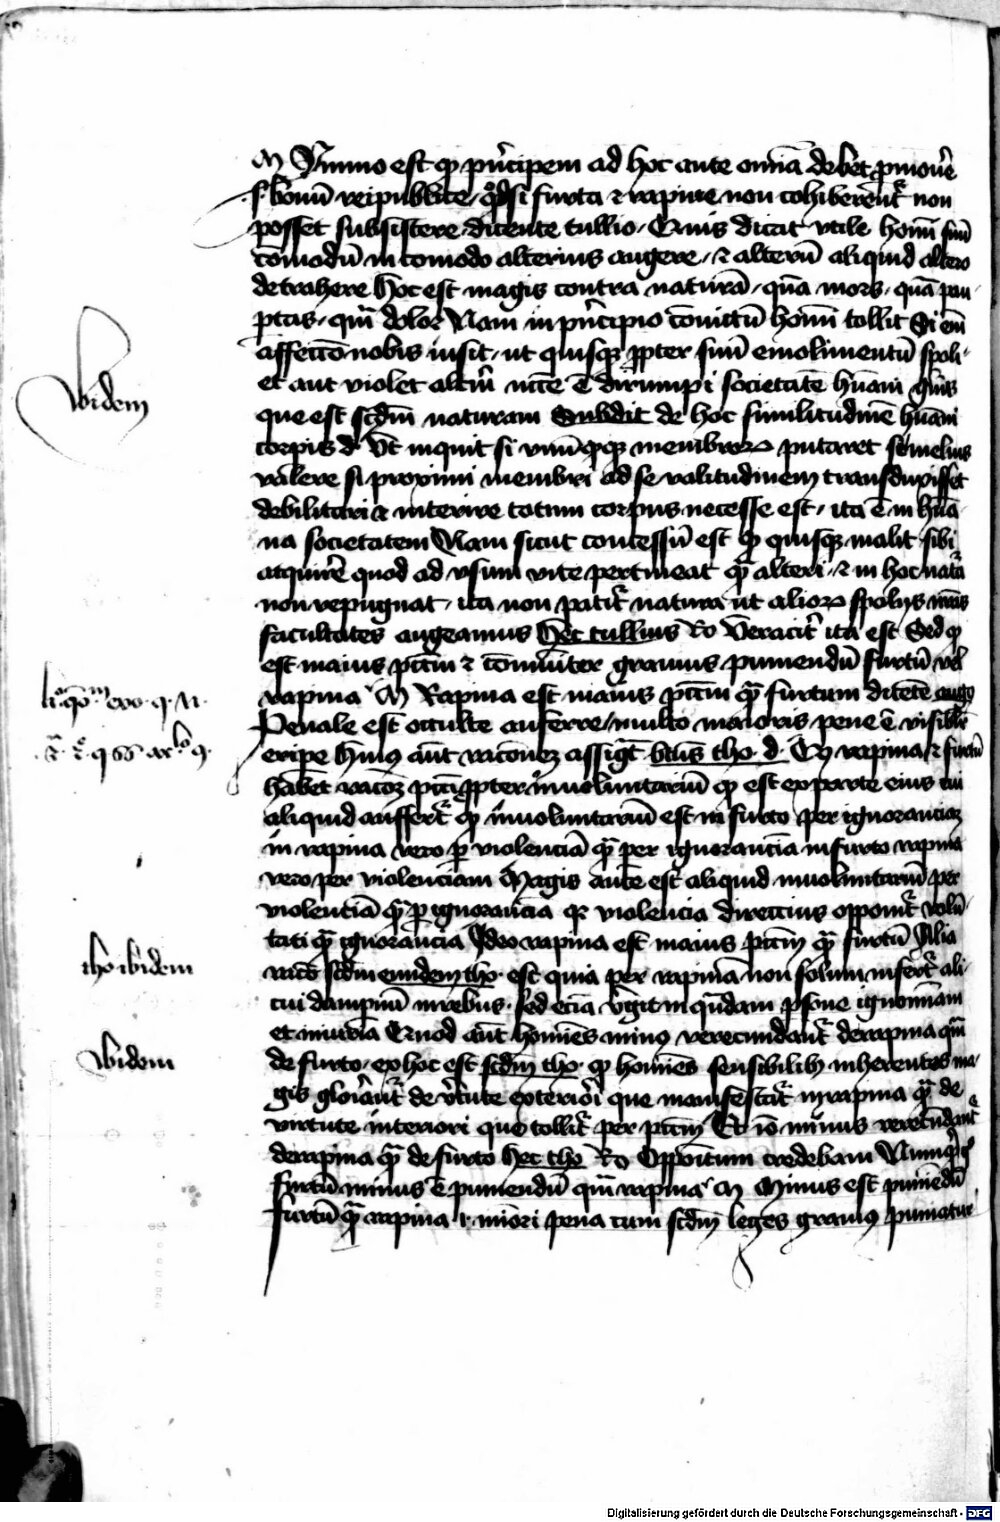 M Ymmo est qz pncipem ad hoc ante omia debet pmouere
s. bonu reipublice. qd si furta et rapine non cohiberent non
posset subsistere. dicente tullio. Cuius dicit utile homi suu
comodu incomodo alterius augere. et alteru aliquid altero
detrahere hoc est magis contra natura. qua mors. qua pau
ptas. qm dolor Nam in pncipio conuictu homi tollit Si em
affecto nobis insit. ut quisqz ppter suu emolumentu spoli
et aut violet altm necce e dirumpi societate humani
que est scdm naturam Subdit de hoc similitudine humani
corpis d. Ut inquit si unuqdqz membror putaret se melius
valere si proximi membri ad se valitudinem transduxisset
debilitari et interire totum corpus necesse est. ita e in huma
na societatem Nam sicut concessu est qz quisqz malit sibi
acquire quod ad usum vite pertineat qz alteri. et in hoc nata
non repugnat. ita non patit natura ut alior spolys nris
facultates augeamus hec tullius Ro Veracit ita est Sed qd
est maius pctm et comuniter grauius puniendu furtu vel
rapina M Rapina est maius pctm qz furtum dicete augo
Penale est occulte auferre multo maioris pene e visibilr
eripe huius aut racionez assigt btus tho. d. Cz rapina et furtu
habet racoz pcti ppter inuoluntarium qd est ex parte eius cui
aliquid auffert qz inuoluntariu est in furto per ignoranciaz
in rapina vero p violencia qz per ignorancia in furto rapina
vero per violenciam Magis aute est aliquid inuoluntariu per
violencia qz p ignorancia qr violencia directius opponit volu
tati qz ignorancia Ideo rapina est maius pctm qz furtu Alia
raco scdm eundem tho. est quia per rapina non solum infert ali
cui dampnu in rebus. sed ecia vgit in quadam psone ignominiam
et iniuria Quod aut homies minus verecundant de rapina qm
de furto. ex hoc est scdm tho. qz homies sensibilibz inherentes ma
gis gloriant de vtute exteriori que manifestat in rapina qz de
virtute interiori que tollit per pctm Et io minus verecudant
de rapina qz de furto hec tho Ro Oppoitum credebam Nunqd
furtu minus e puniendu qm rapina M Minus est puniedu
furtu qz rapina i. miori pena cum scdm leges grauius puniatur
Ibidem
tho ibidem
Ibidem
Digitalisierung gefördert durch die Deutsche Forschungsgemeinschaft - DFG